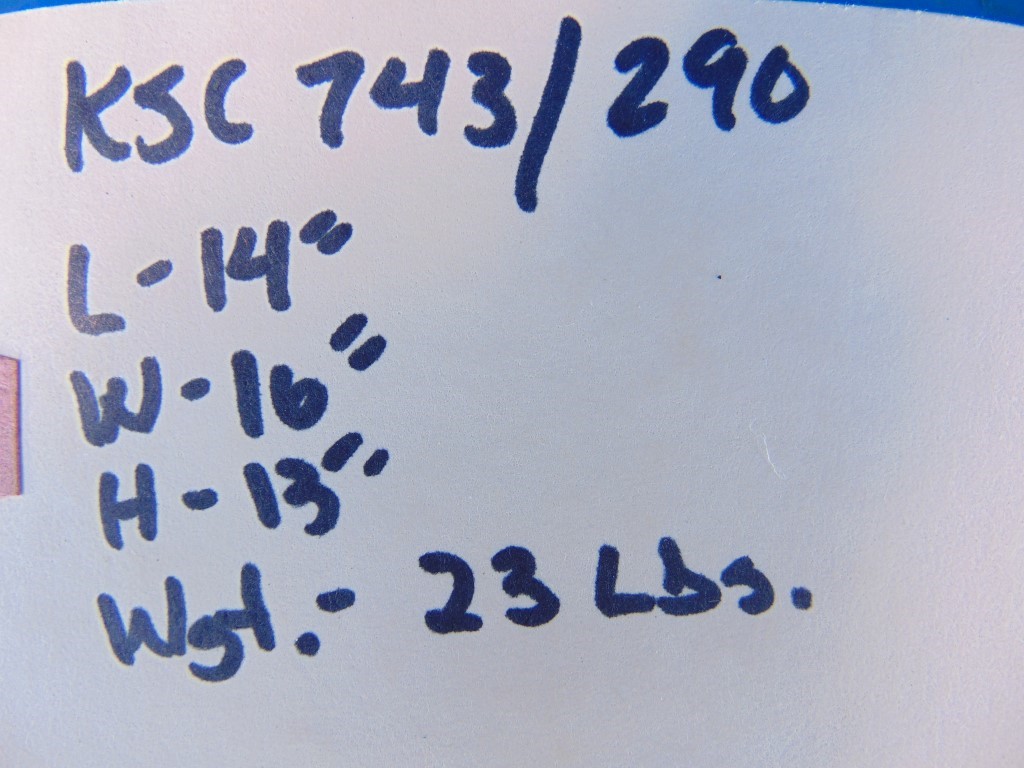 KSC 743/290
L - 14"
W - 16"
H - 13"
Wgt. - 23 Lbs.